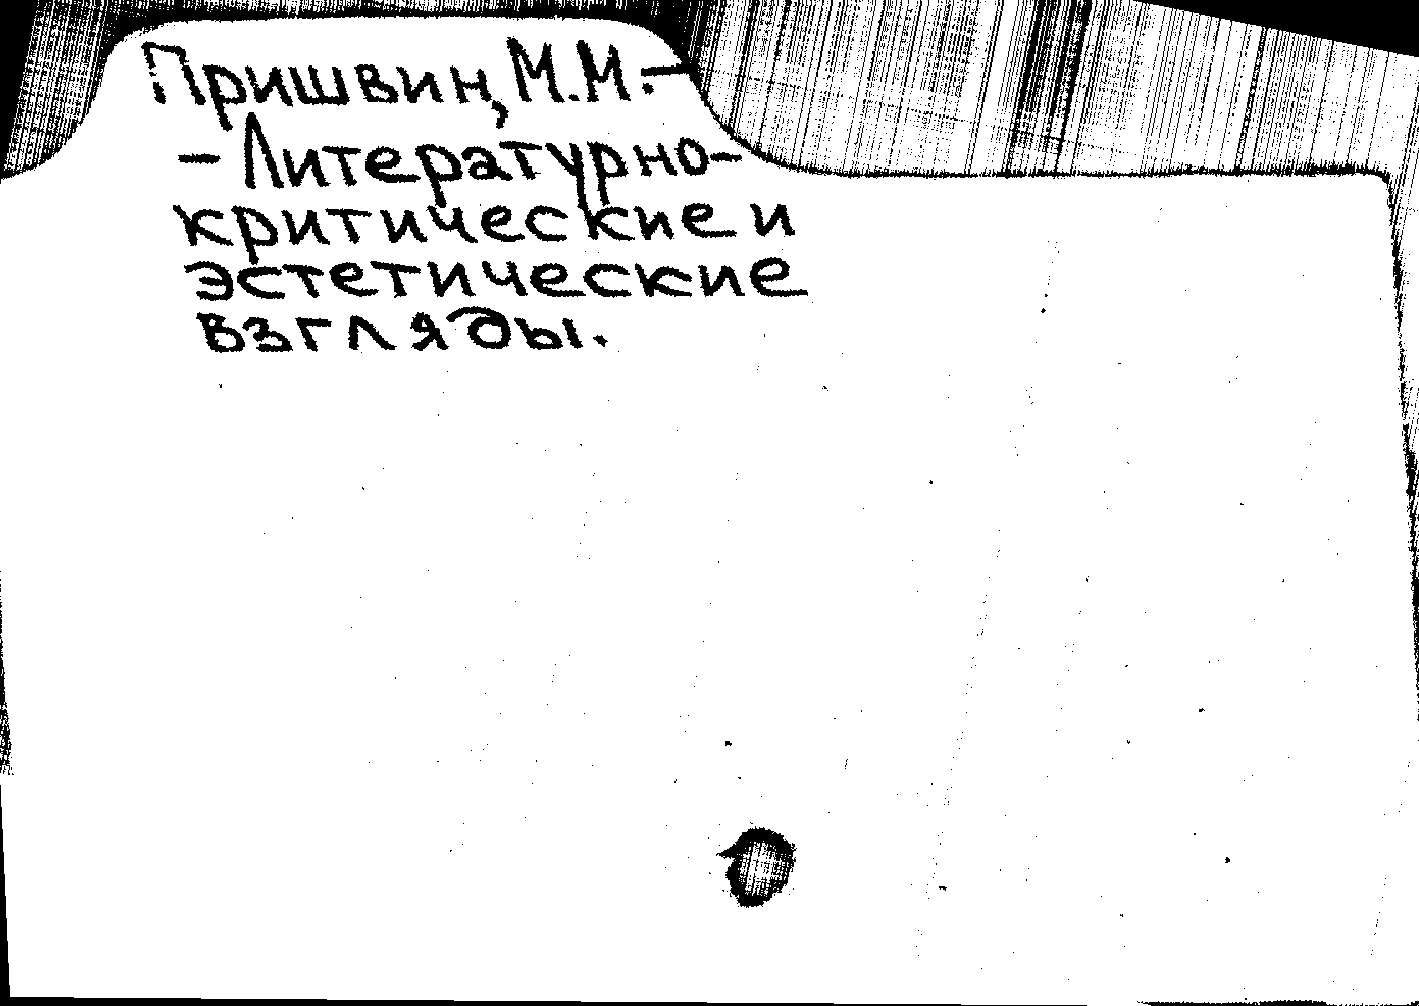 Пришвин, М.М. –
– Литературно-
критические и
эстетические
взгляды.